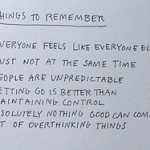 THINGS TO REMEMBER
EVERYONE FEELS LIKE EVERYONE EL
JUST NOT AT THE SAME TIME
PEOPLE ARE UNPREDICTABLE
LETTING GO IS BETTER THAN
MAINTAINING CONTROL
ABSOLUTELY NOTHING GOOD CAN COM
OUT OF OVERTHINKING THINGS